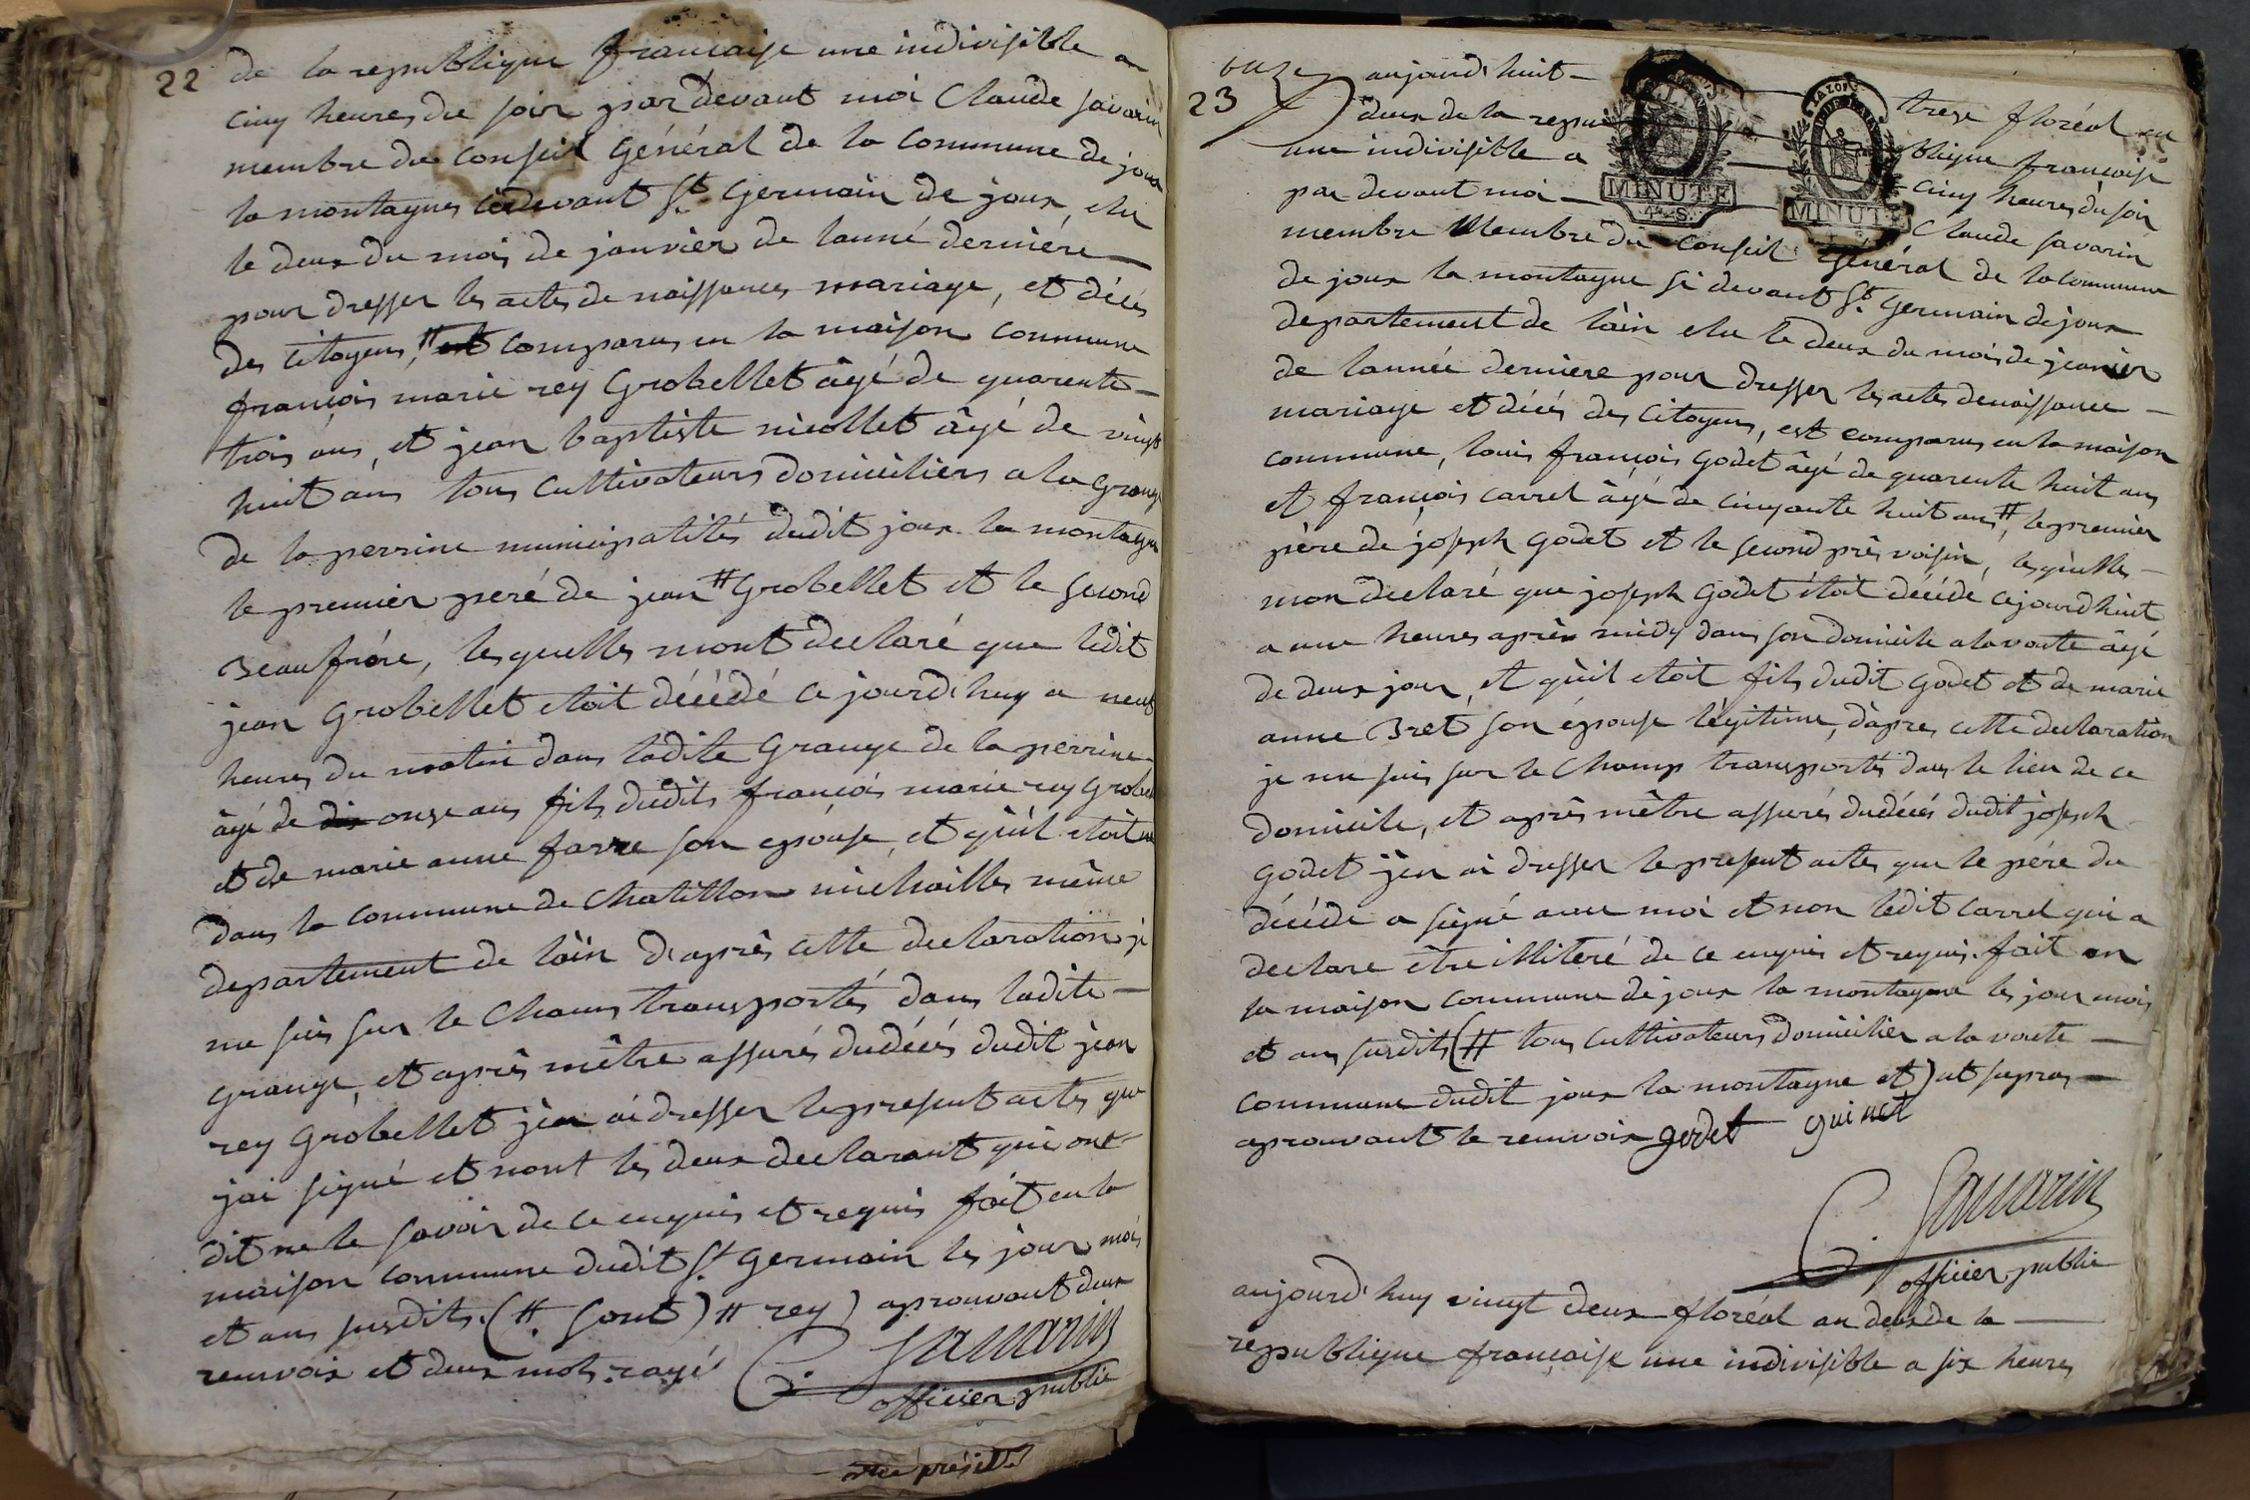 22
de la republique francaise une indivisible a
cinq heures du soir par devant moi Claude savarin
membre du Conseil Général de la Commune de joux
la montagnes cidevant St. Germain de joux, elu
le deux du mois de janvier de lanné derniére
pour dresser les actes de naissances mariage, et décés
des Citoyens, # est comparus en la maison Commune
françois marie rey Grobellet âgé de quarente
trois ans, et jean baptiste nicollet âgé de vingt
huit ans tous Cultivateurs domiciliers a la Grange
de la perrine municipalités dudit joux la montagne
le premier peré de jean # Grobellet et le second
Beaufrére, lesquelles mont declaré que ledit
jean Grobellet etoit décédé ce jourd'huy a neuf
heures du matin dans ladite Grange de la perrine
âgé de dix onze ans fils dudits françois marie rey Grobellet
et de marie anne favre son epouse, et qu'il etoit né
dans la Commune de Chatillon michailles même
departement de l'ain d'après cette declaration je
me suis sur le Cham transportés dans ladite
Grange, et après mêtre assurés dudécés dudit jean
rey Grobellet jèn ai dresser le present actes que
jai signé et nont les deux declarant qui ont
dit ne le savoir de ce enquis et requis fait en la
maison Commune dudit St. Germain les jour mois
et ans susdits. (# sont) # rey) aprouvant deux
renvois et deux mots rayé
C. Savarin
officier public
23
onze
aujourd'huit treze floréal an
deux de la republique francaise
une indivisible a cinq heures du soir
par devant moi Claude savarin
MINUTE
4. S.
MINUTE
membre Membre du Conseil Général de la Commune
de joux la montagne si devant St. Germain de joux
departement de l'ain elu le deux du mois de jeanvier
de lannée derniere pour dresser les actes denaissance
mariage et décés des Citoyens, est comparus en la maison
commune, louis françois Godet âgé de quarente huit ans
et françois carrel âgé de cinquante huit ans, # le premier
père de joseph Godet et le second prês voisin, lesquelles
mon declaré que joseph Godet étoit décédé cejourdhuit
a une heures après midy dans son domicile a la voute âgé
de deux jour, et qùil etoit fils dudit Godet et de marie
anne Bret son épouse legitime, dàpres cette declaration
je me suis sur le Champ transportés dans le lieu de ce
domicile, et après mêtre assurés dudécés dudit joseph
Godet jèn ai dresser le present actes que le pére du
décéde a signé avec moi et non ledit Carrel qui a
declare être illiteré de ce enquis et requis. fait en
la maison Commune de joux la montagne les jour mois
et ans susdits (# tous Cultivateurs domicilier a la voute
commune dudit joux la montagne et) ut supras
aprouvant le renvois godet guinet
C. Savarin
officier public
aujourd'huy vingt deux floréal an deux de la
republique française une indivisible a six heures